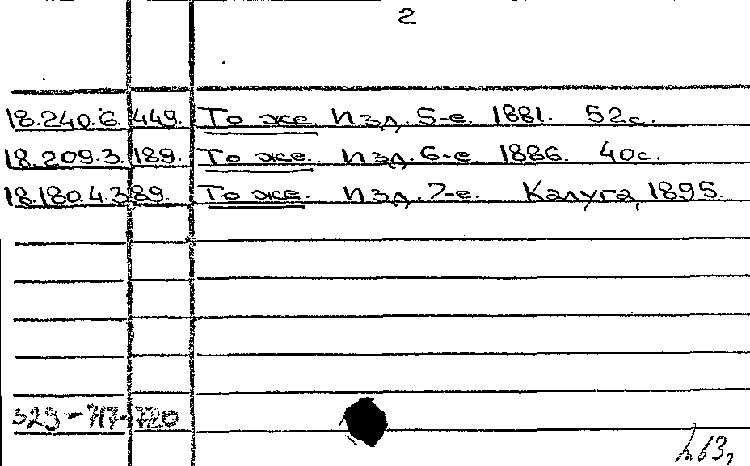 2
18.240.6.449. То же. Изд. 5-е. 1881. 52с.
18.209.3.189. То же. Изд. 6-е 1886. 40с.
18.180.4.389. То же. Изд. 7-е. Калуга, 1895.
529-717-720